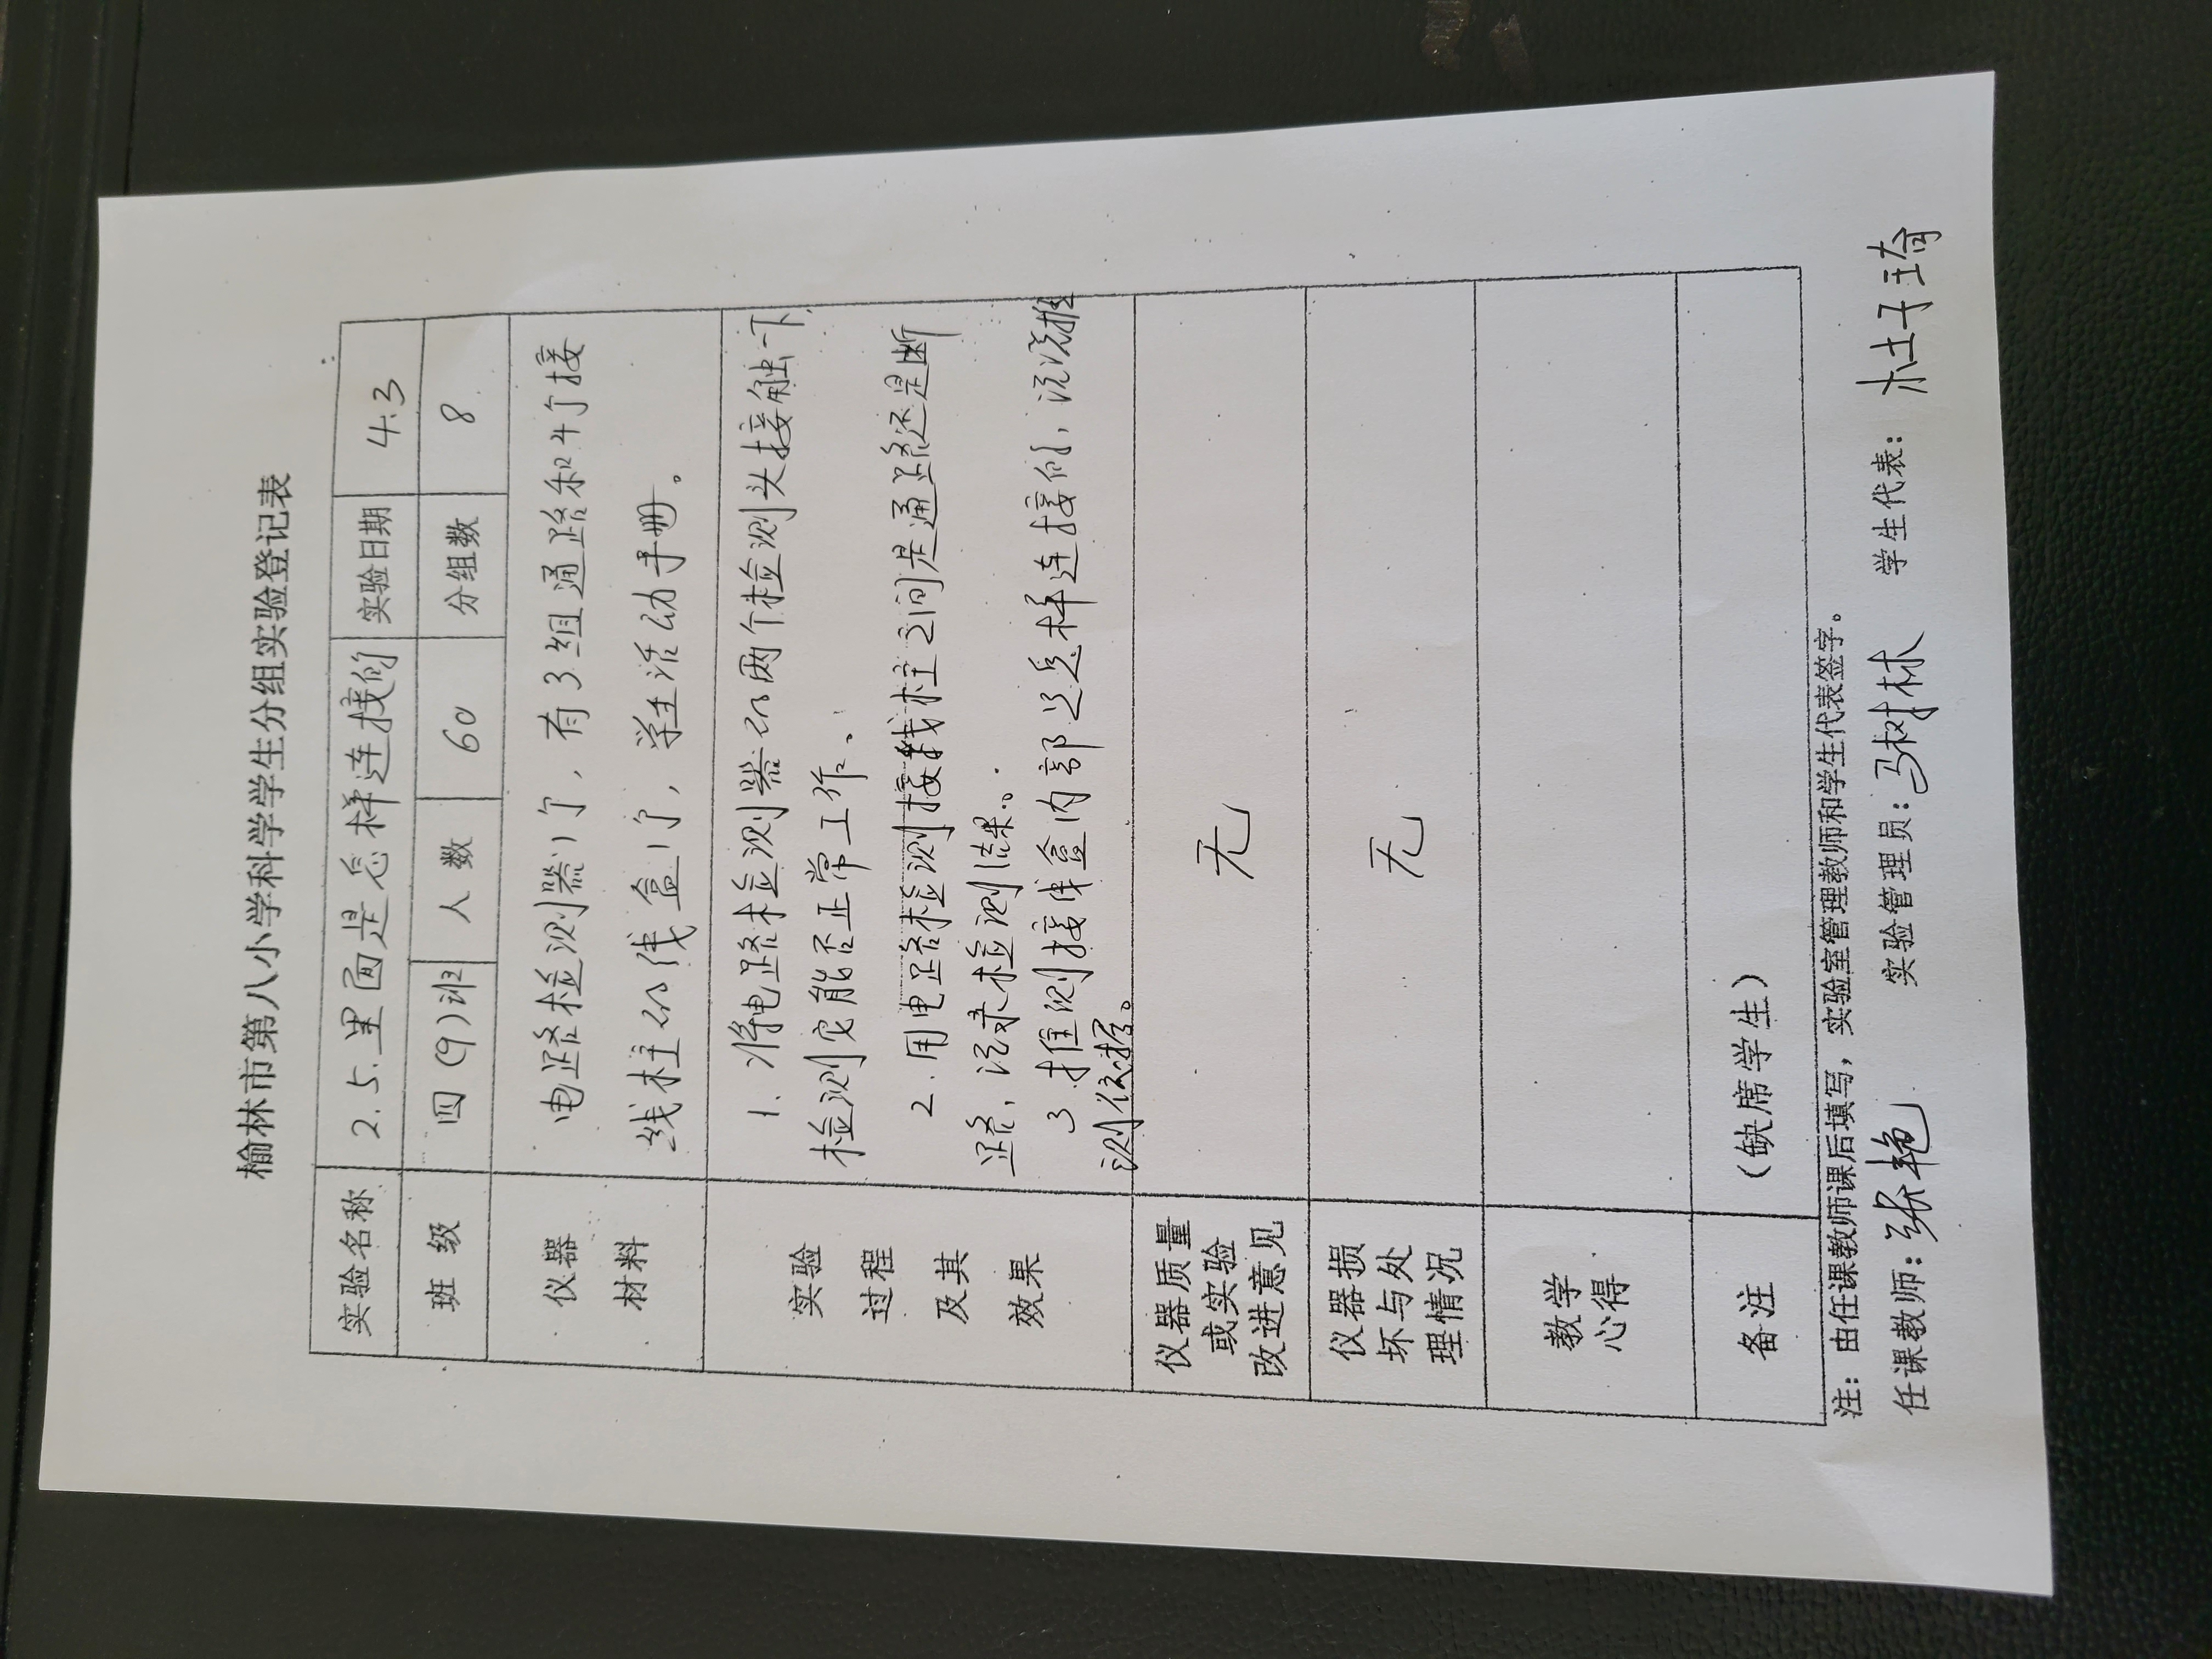 榆林市第八小学科学学生分组实验登记表
实验名称 2.5.里面是怎样连接的 实验日期 4.3
班 级 四(9)班 人 数 60 分组数 8
仪器
材料
电路检测器1个，有3组通路和4个接
线柱的线盒1个，学生活动手册。
实验
过程
及其
效果
1.将电路检测器的两个检测头接触一下，
检测它能否正常工作。
2.用电路检测接线柱之间是通路还是断
路，记录检测结果。
3.推测接线盒内部是怎样连接的，说说推
测依据。
仪器质量
或实验
改进意见
无
仪器损
坏与处
理情况
无
教学
心得
备注 （缺席学生）
注：由任课教师课后填写，实验室管理教师和学生代表签字。
任课教师：张艳 实验管理员：马树林 学生代表：杜子琦